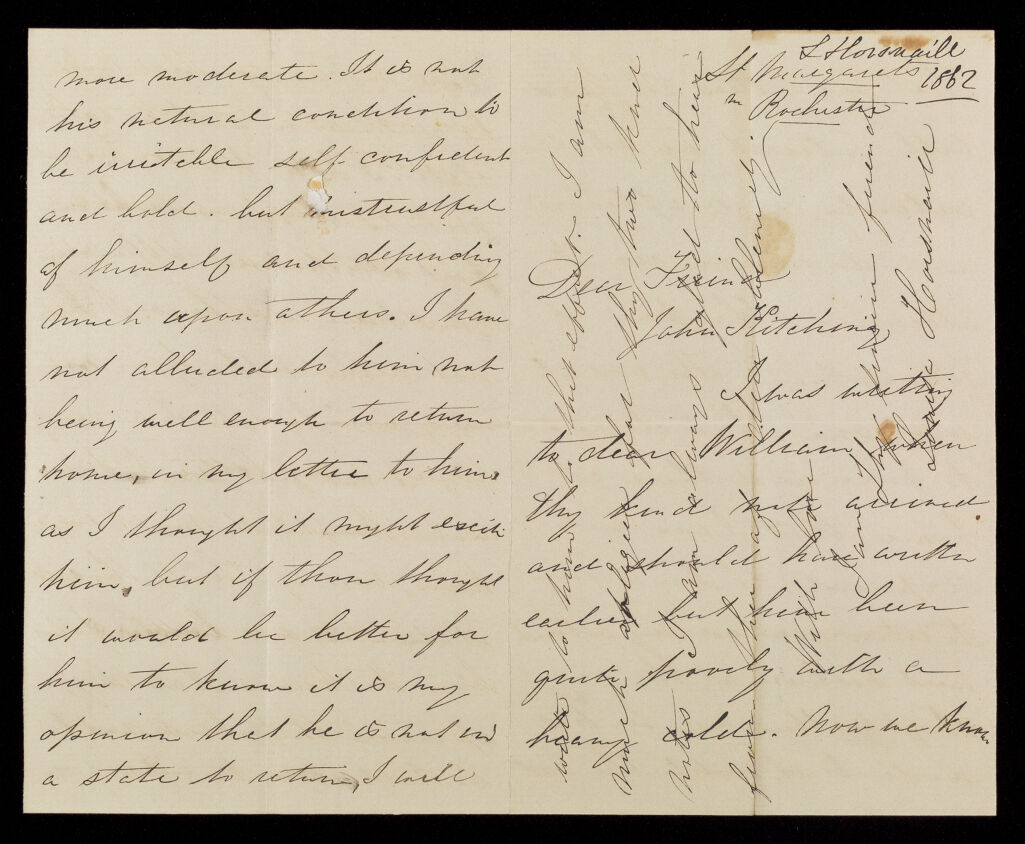 more moderate. It is not
his natural condition to
be irritable self-confident
and bold. but mistrustful
of himself and depending
much upon others. I have
not alluded to him not
being well enough to return
home, in my letter to him
as I thought it might excite
him, but if thou thought
it would be better for
him to know it is my
opinion that he is not in
a state to return, I will
L Horsnaill
St Margarets 1862
nr Rochester
Dear Friend
John Kitching
I was writing
to dear William when
thy kind note arrived
and should have written
earlier but have been
quite poorly with a
heavy cold. Now we know
write to him to that effect. I am
much obliged for thy two kind
notes I am always glad to hear
from thee
With love
I am thy sincere friend
Horsnaill